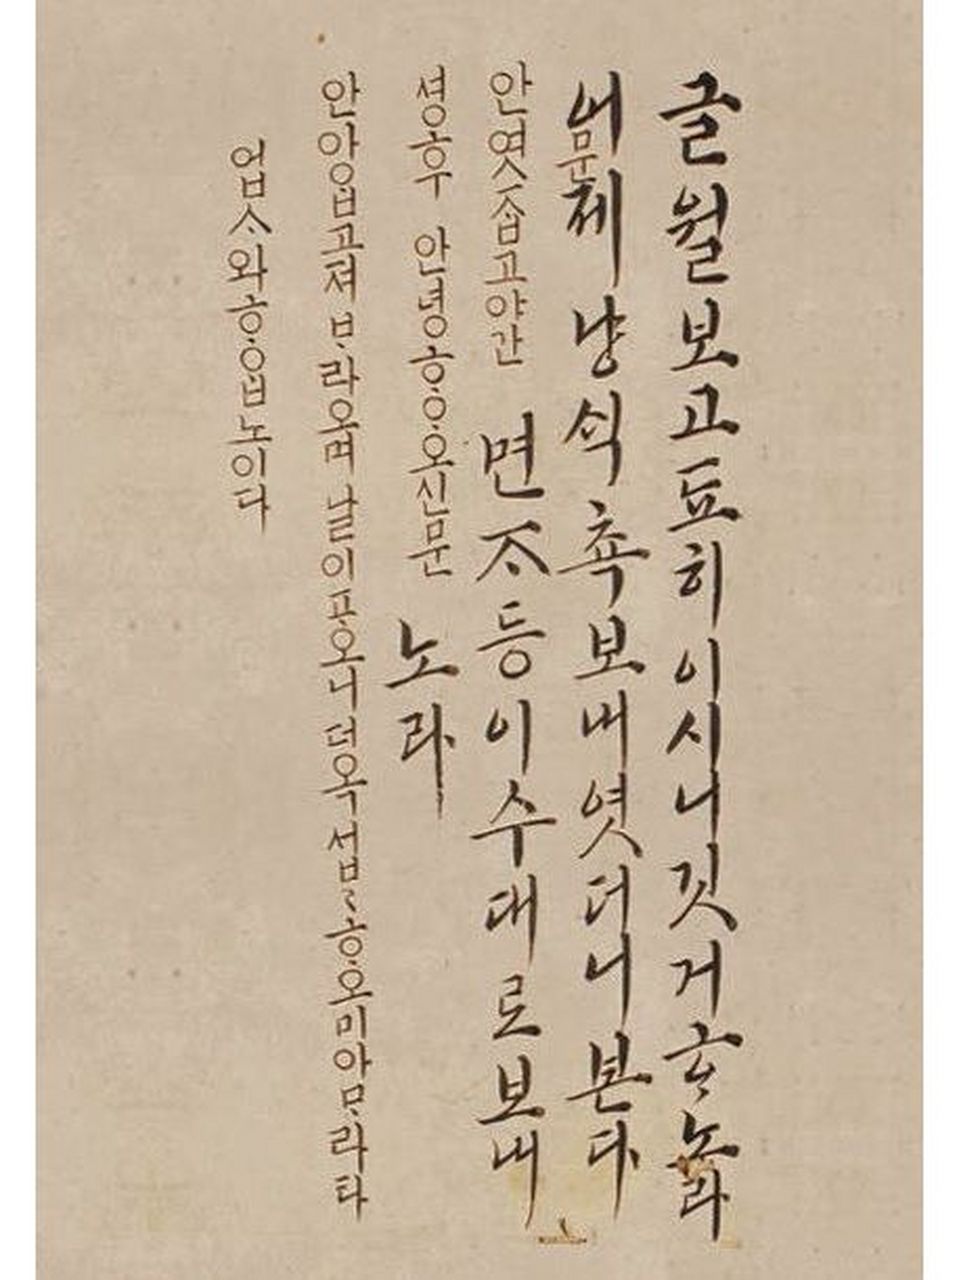 글월보고됴히이시니깃거ᄒᆞ노라
어제냥ᄉᆡᆨ쵹보내엿더니본다
면ᄌᆞ등이수대로보내
노라
문
안엿ᄌᆞᆸ고야간
셩후 안녕ᄒᆞᄋᆞ오신문
안아ᄋᆞᆸ고져 ᄇᆞ라오며 날이포오니 더옥 섭〻ᄒᆞᄋᆞ오미아ᄆᆞ라타
업ᄉᆞ와ᄒᆞᄋᆞᆸ노이다